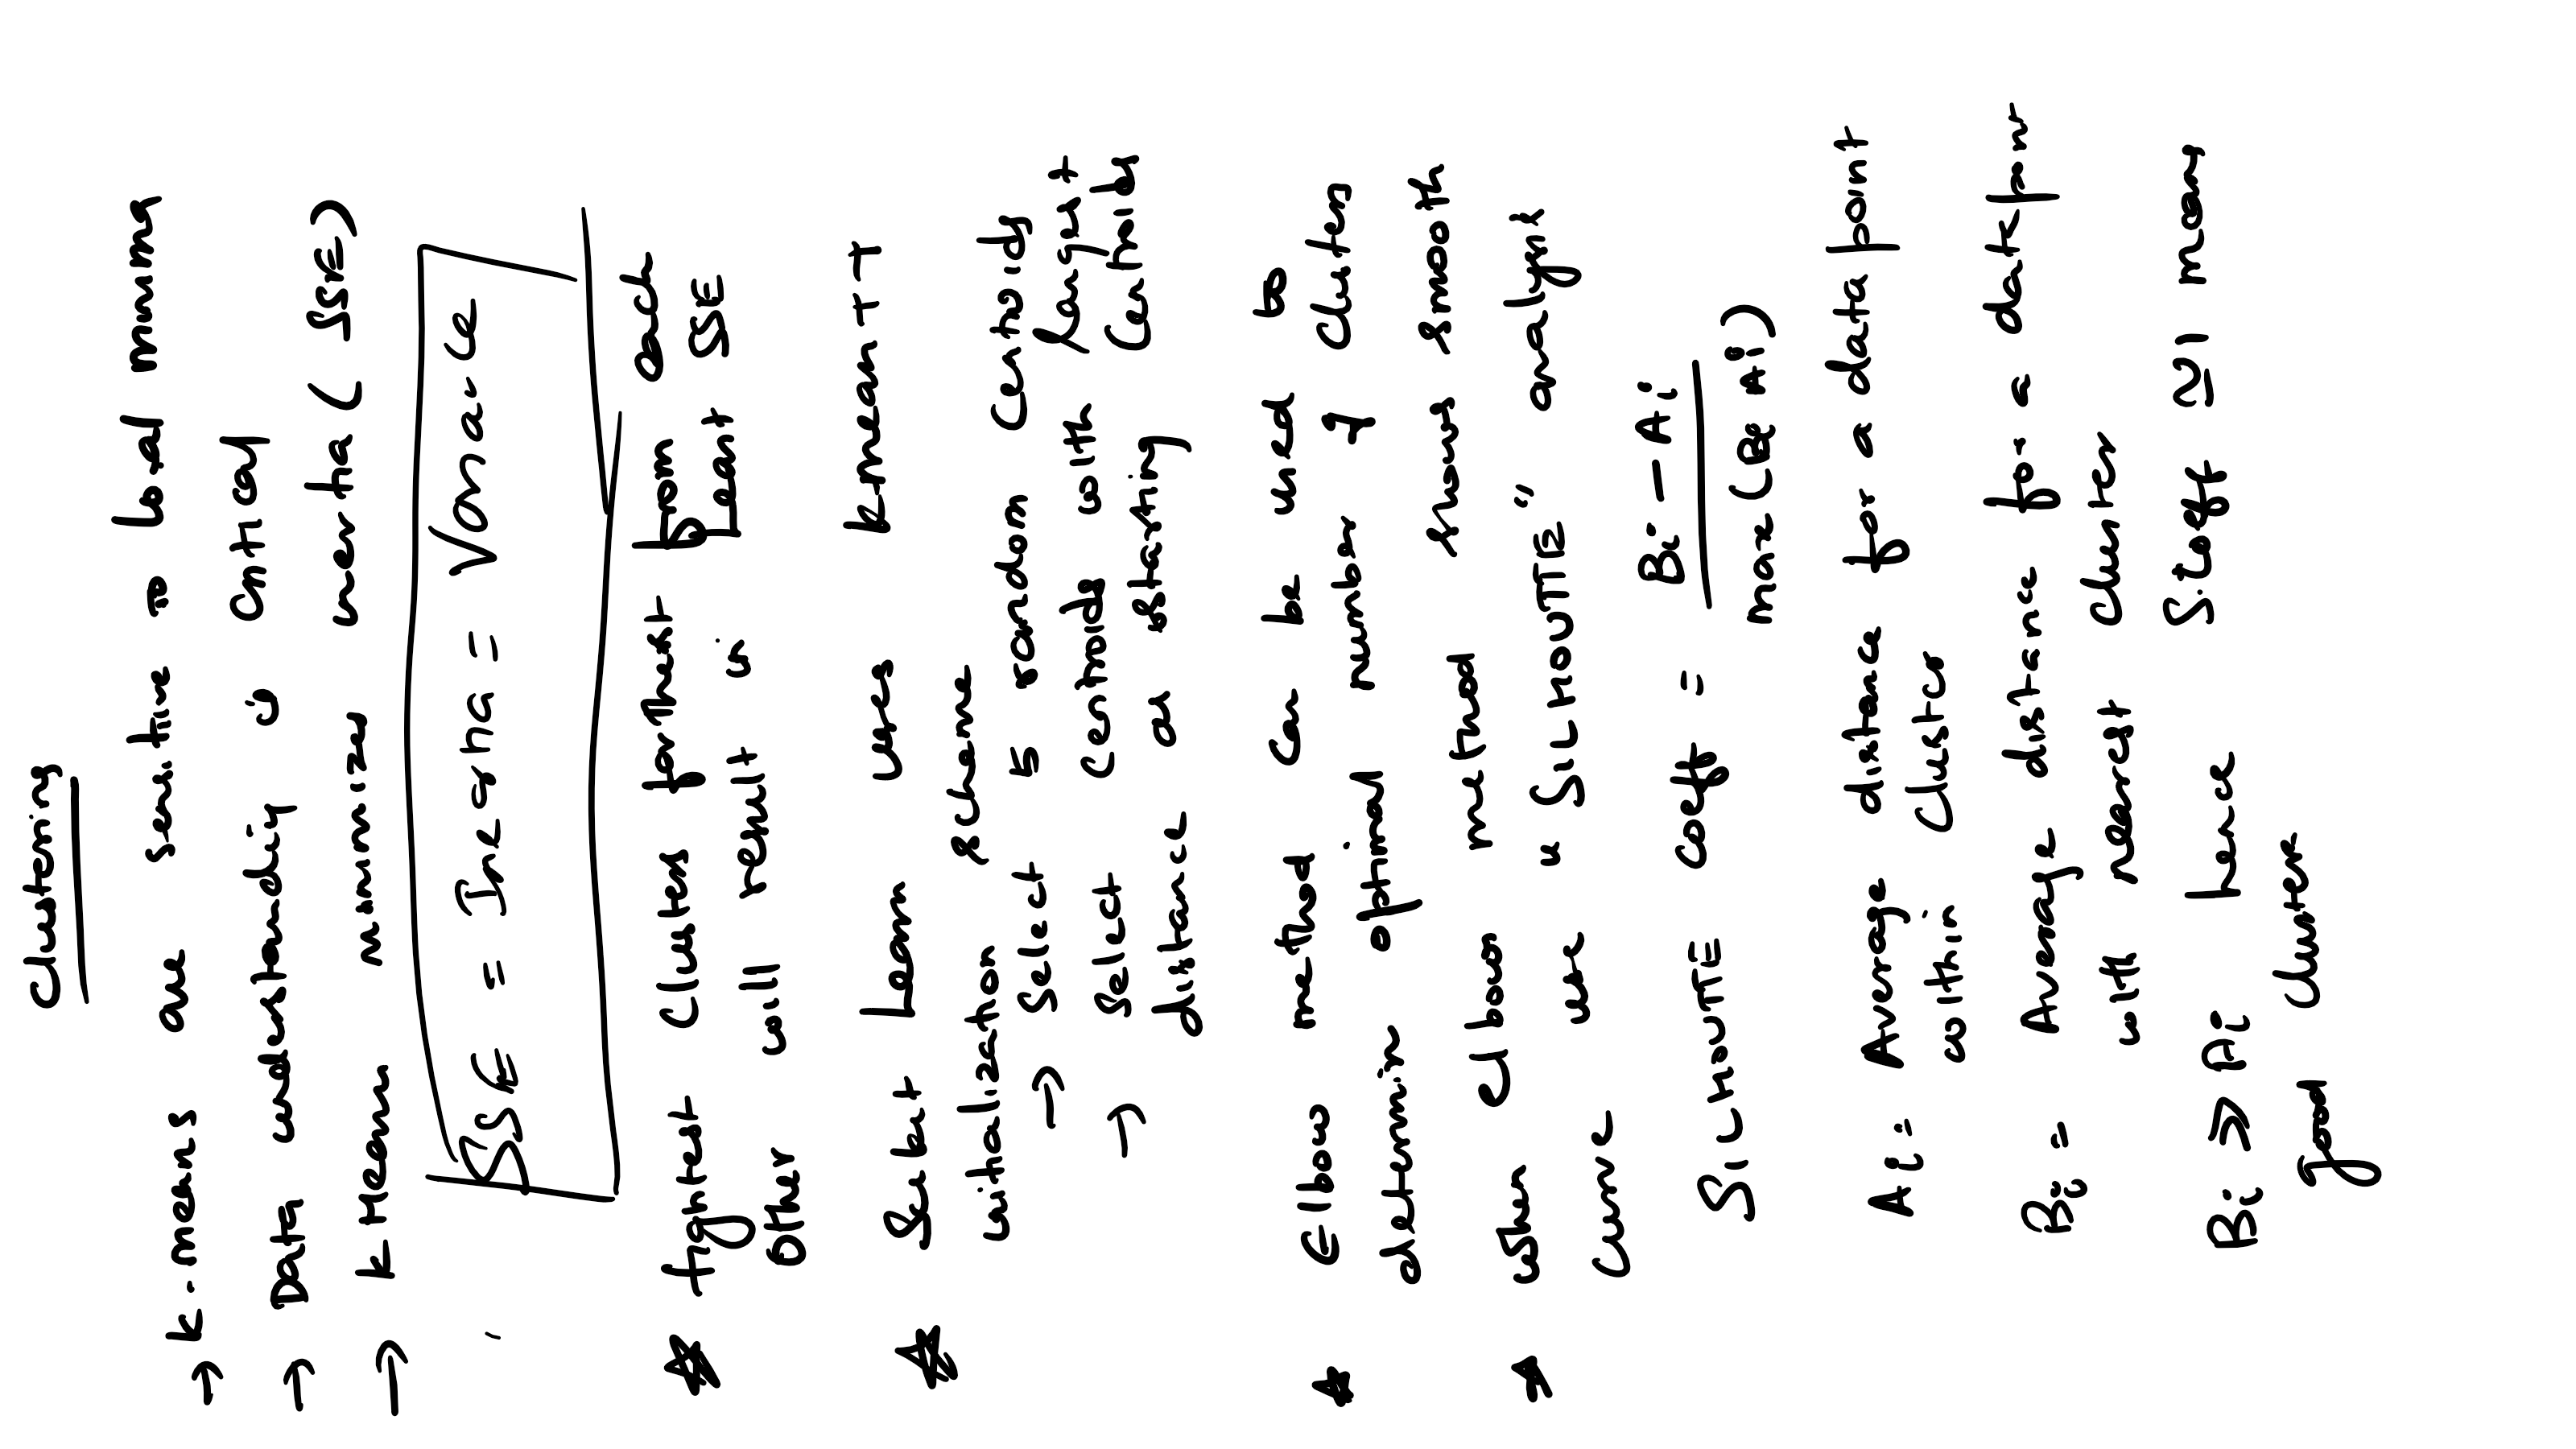 Clustering
→ k-means are sensitive to local minima
→ Data understanding is critical
→ k Mean minimizes inertia (SSE)
SSE = Inertia = Variance
* tightest Clusters farthest from each
other will result in Least SSE
* Scikit Learn uses kmean++
initialization scheme
→ Select 5 random Centroids
→ Select Centroids with largest
distance as starting Centroids
* Elbow method can be used to
determin optimal number of Clusters
* when elbow method shows smooth
Curve use "SILHOUTTE" analysis
SILHOUTTE coeff = Bi - Ai
max(Bi Ai)
Ai = Average distance for a data point
within Cluster
Bi = Average distance for a datapoint
with nearest cluster
Bi >> Ai hence S.coeff ≃ 1 means
good Clusters